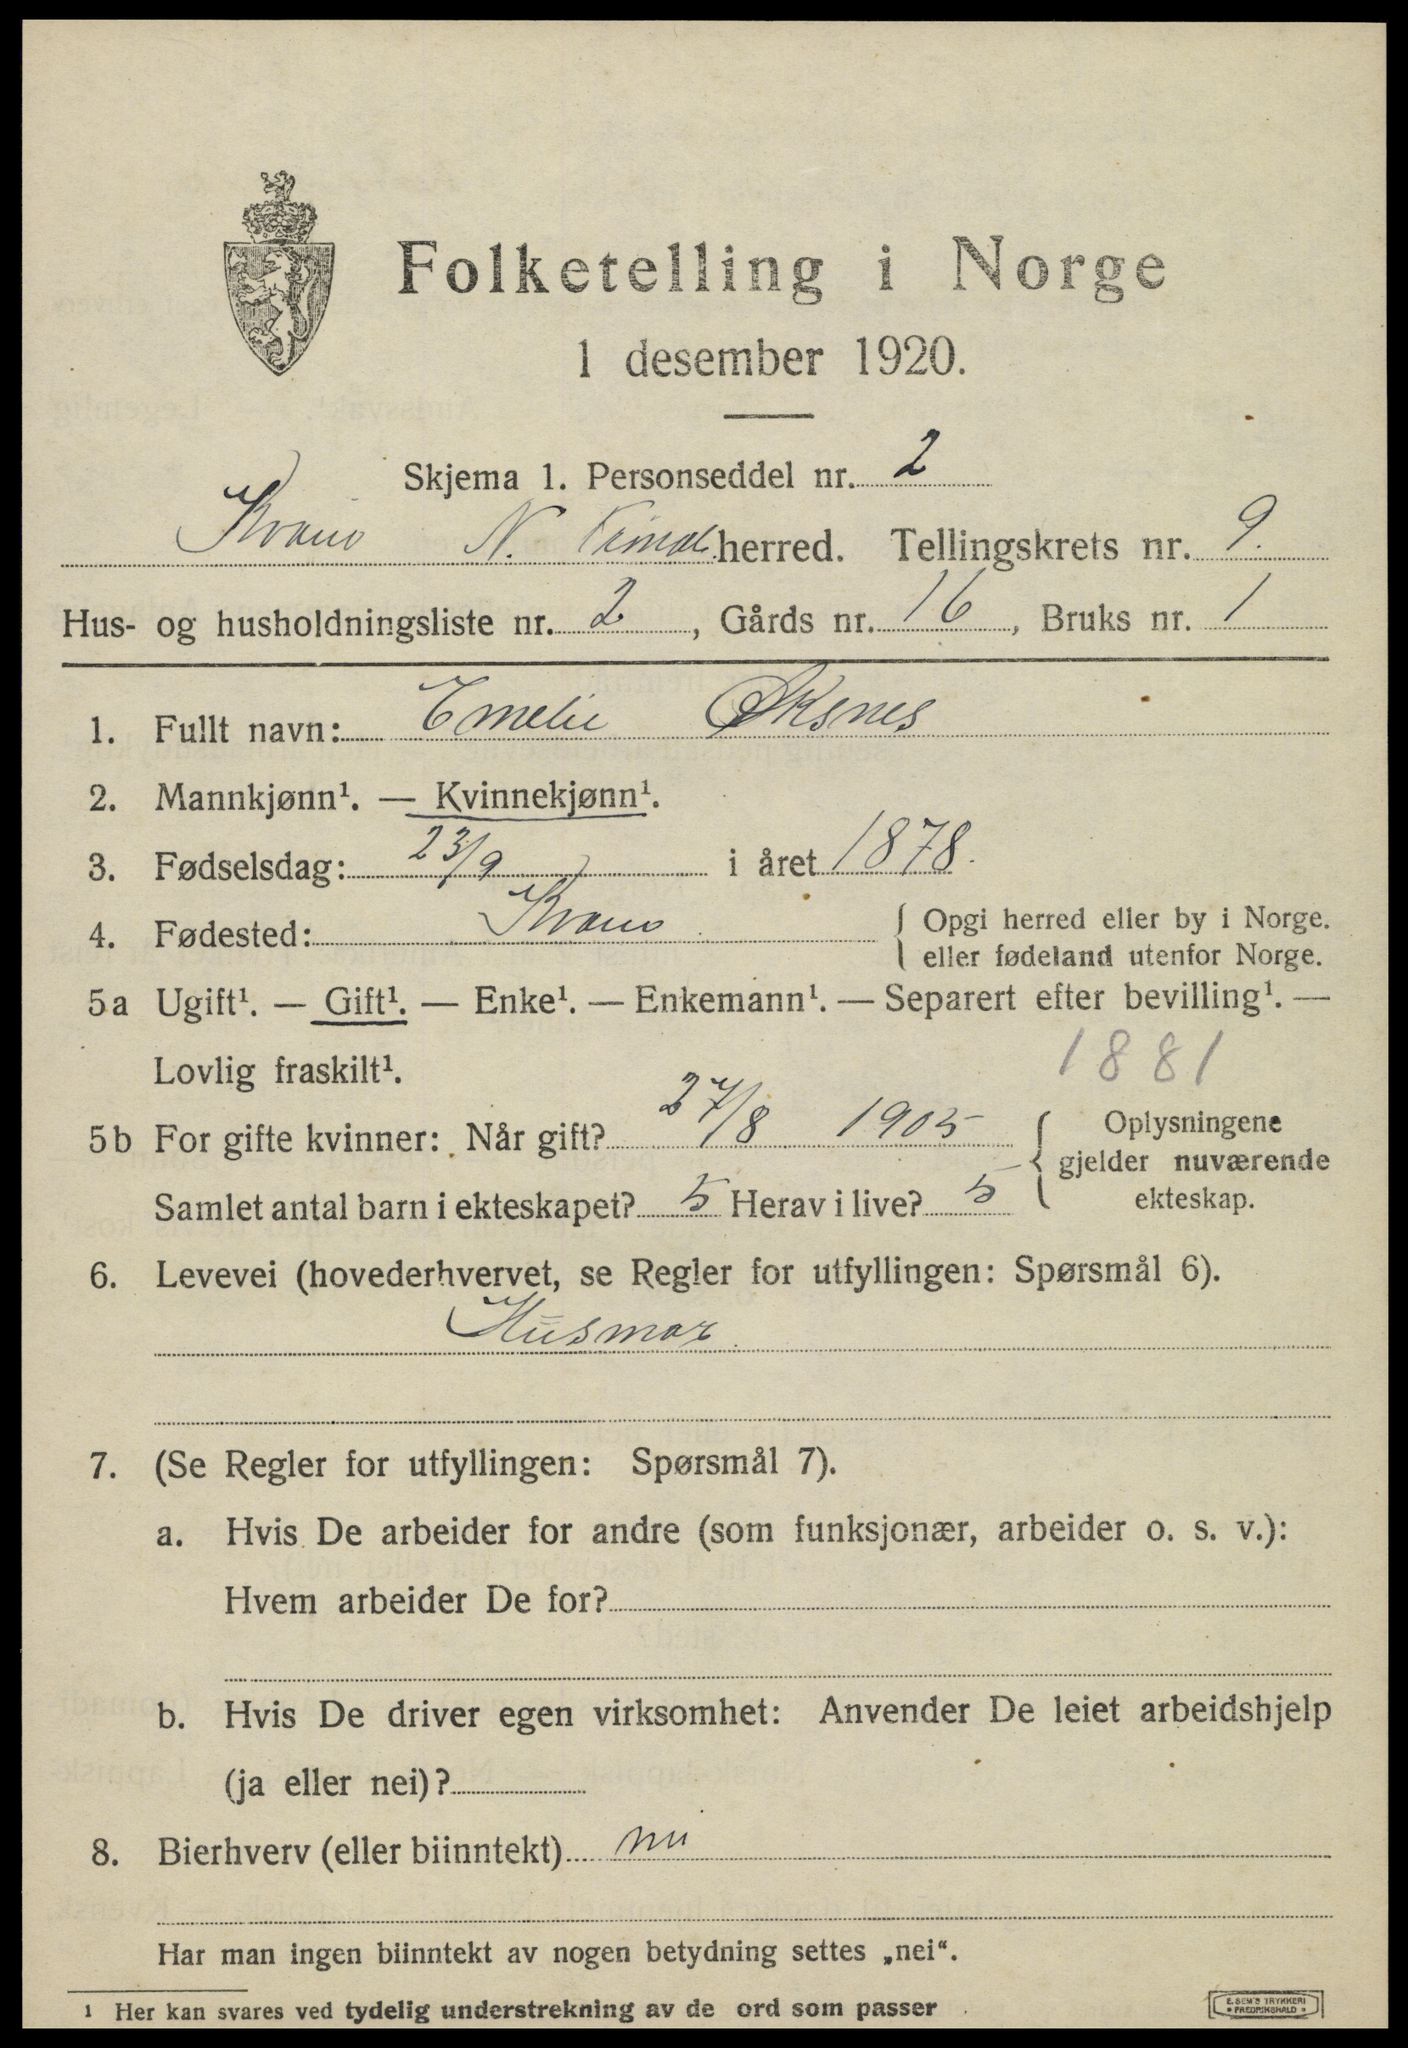 Folketelling i Norge
1 desember 1920.
Skjema 1. Personseddel nr. 2
Kvam N. herred. Tellingskrets nr. 9.
Hus- og husholdningsliste nr. 2, Gårds nr. 16, Bruks nr. 1
1. Fullt navn: Emelie Øksnes
2. Mannkjønn¹. — Kvinnekjønn¹.
3. Fødselsdag: 23/9 i året 1878.
4. Fødested: Kvam { Opgi herred eller by i Norge.
eller fødeland utenfor Norge.
5a Ugift¹. — Gift¹. — Enke¹. — Enkemann¹. — Separert efter bevilling¹. —
Lovlig fraskilt¹. 1881
5b For gifte kvinner: Når gift? 27/8 1905 { Oplysningene
gjelder nuværende
Samlet antal barn i ekteskapet? 5 Herav i live? 5 ekteskap.
6. Levevei (hovederhvervet, se Regler for utfyllingen: Spørsmål 6).
Husmor
7. (Se Regler for utfyllingen: Spørsmål 7).
a. Hvis De arbeider for andre (som funksjonær, arbeider o. s. v.):
Hvem arbeider De for?
b. Hvis De driver egen virksomhet: Anvender De leiet arbeidshjelp
(ja eller nei)?
8. Bierhverv (eller biinntekt) nei
Har man ingen biinntekt av nogen betydning settes „nei“.
¹ Her kan svares ved tydelig understrekning av de ord som passer
E. SEM'S TRYKKERI
FREDRIKSHALD